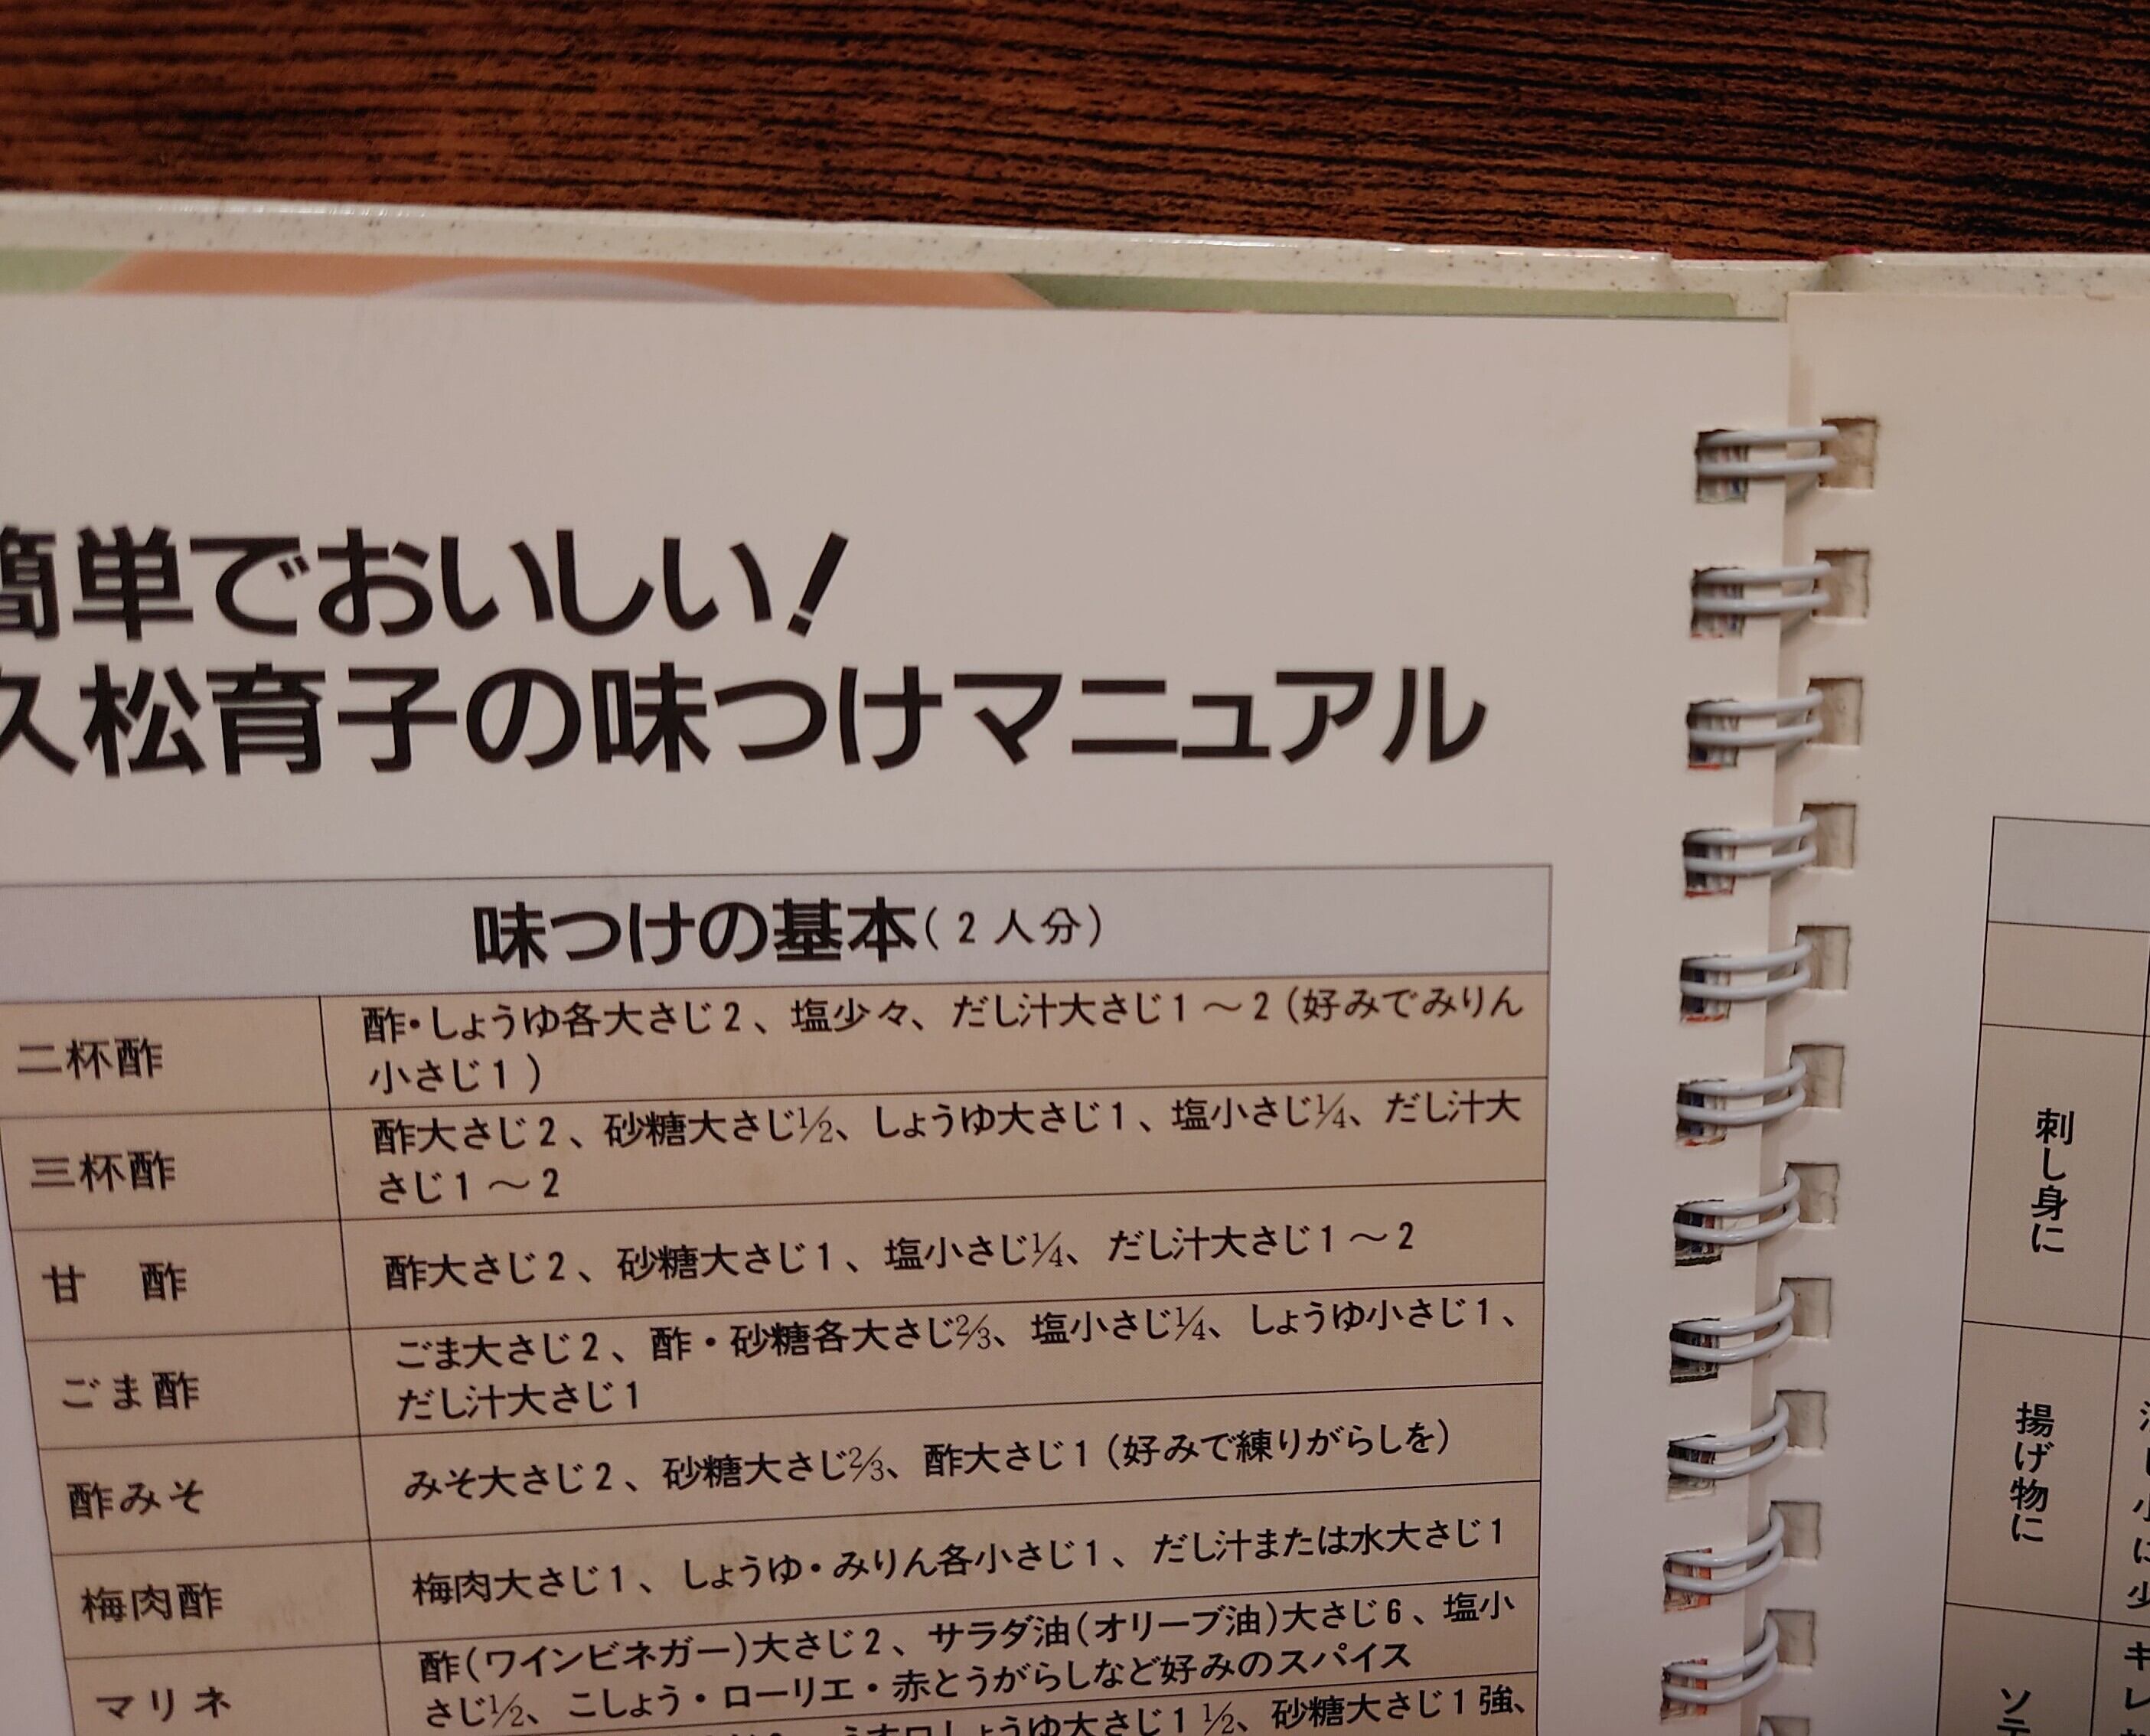 簡単でおいしい！
久松育子の味つけマニュアル
味つけの基本(2人分)
二杯酢
酢・しょうゆ各大さじ2、塩少々、だし汁大さじ1～2(好みでみりん
小さじ1)
三杯酢
酢大さじ2、砂糖大さじ½、しょうゆ大さじ1、塩小さじ¼、だし汁大
さじ1～2
甘 酢
酢大さじ2、砂糖大さじ1、塩小さじ¼、だし汁大さじ1～2
ごま酢
ごま大さじ2、酢・砂糖各大さじ⅔、塩小さじ¼、しょうゆ小さじ1、
だし汁大さじ1
酢みそ
みそ大さじ2、砂糖大さじ⅔、酢大さじ1(好みで練りがらしを)
梅肉酢
梅肉大さじ1、しょうゆ・みりん各小さじ1、だし汁または水大さじ1
マリネ
酢(ワインビネガー)大さじ2、サラダ油(オリーブ油)大さじ6、塩小
さじ½、こしょう・ローリエ・赤とうがらしなど好みのスパイス
しょうゆ大さじ1½、砂糖大さじ1強、
刺し身に
揚げ物に
ソテ